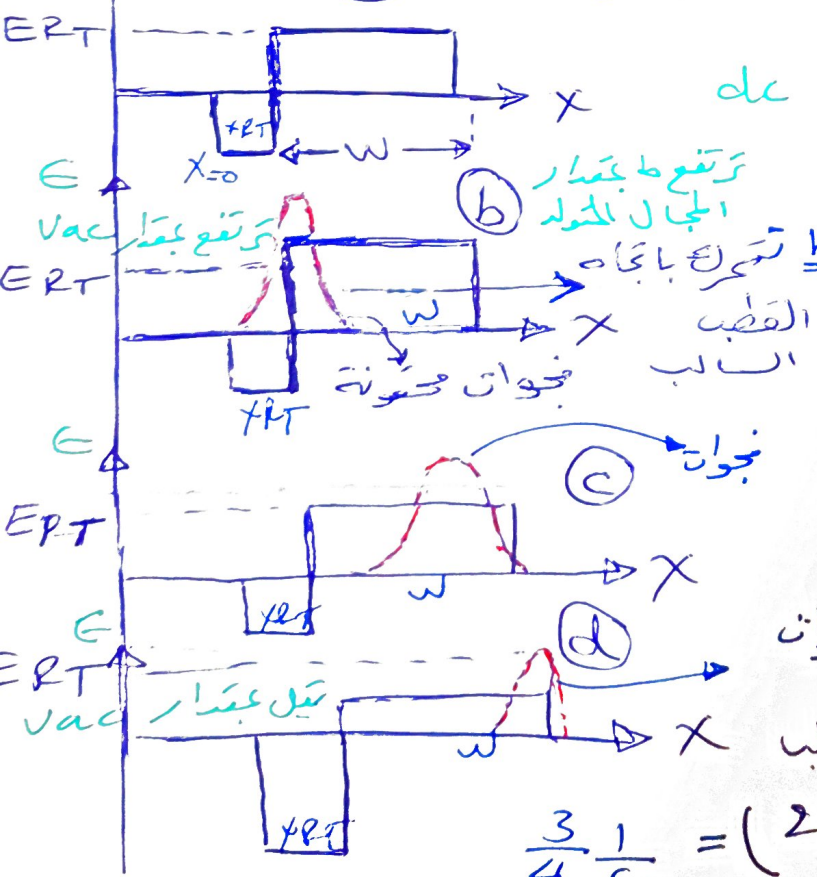 ERT
X
dc
XRT
W
X=0
ϵ
b
ترتفع ط بمقدار
المجال المتولد
Vac ترتفع بمقدار
ERT
تتحرك باتجاه
القطب
السالب
W
X
فجوات محقونة
XRT
ϵ
c
فجوات
ERT
X
W
XRT
ϵ
d
ERT
Vac تقل بمقدار
W
X
XRT
3/4 1 =(2